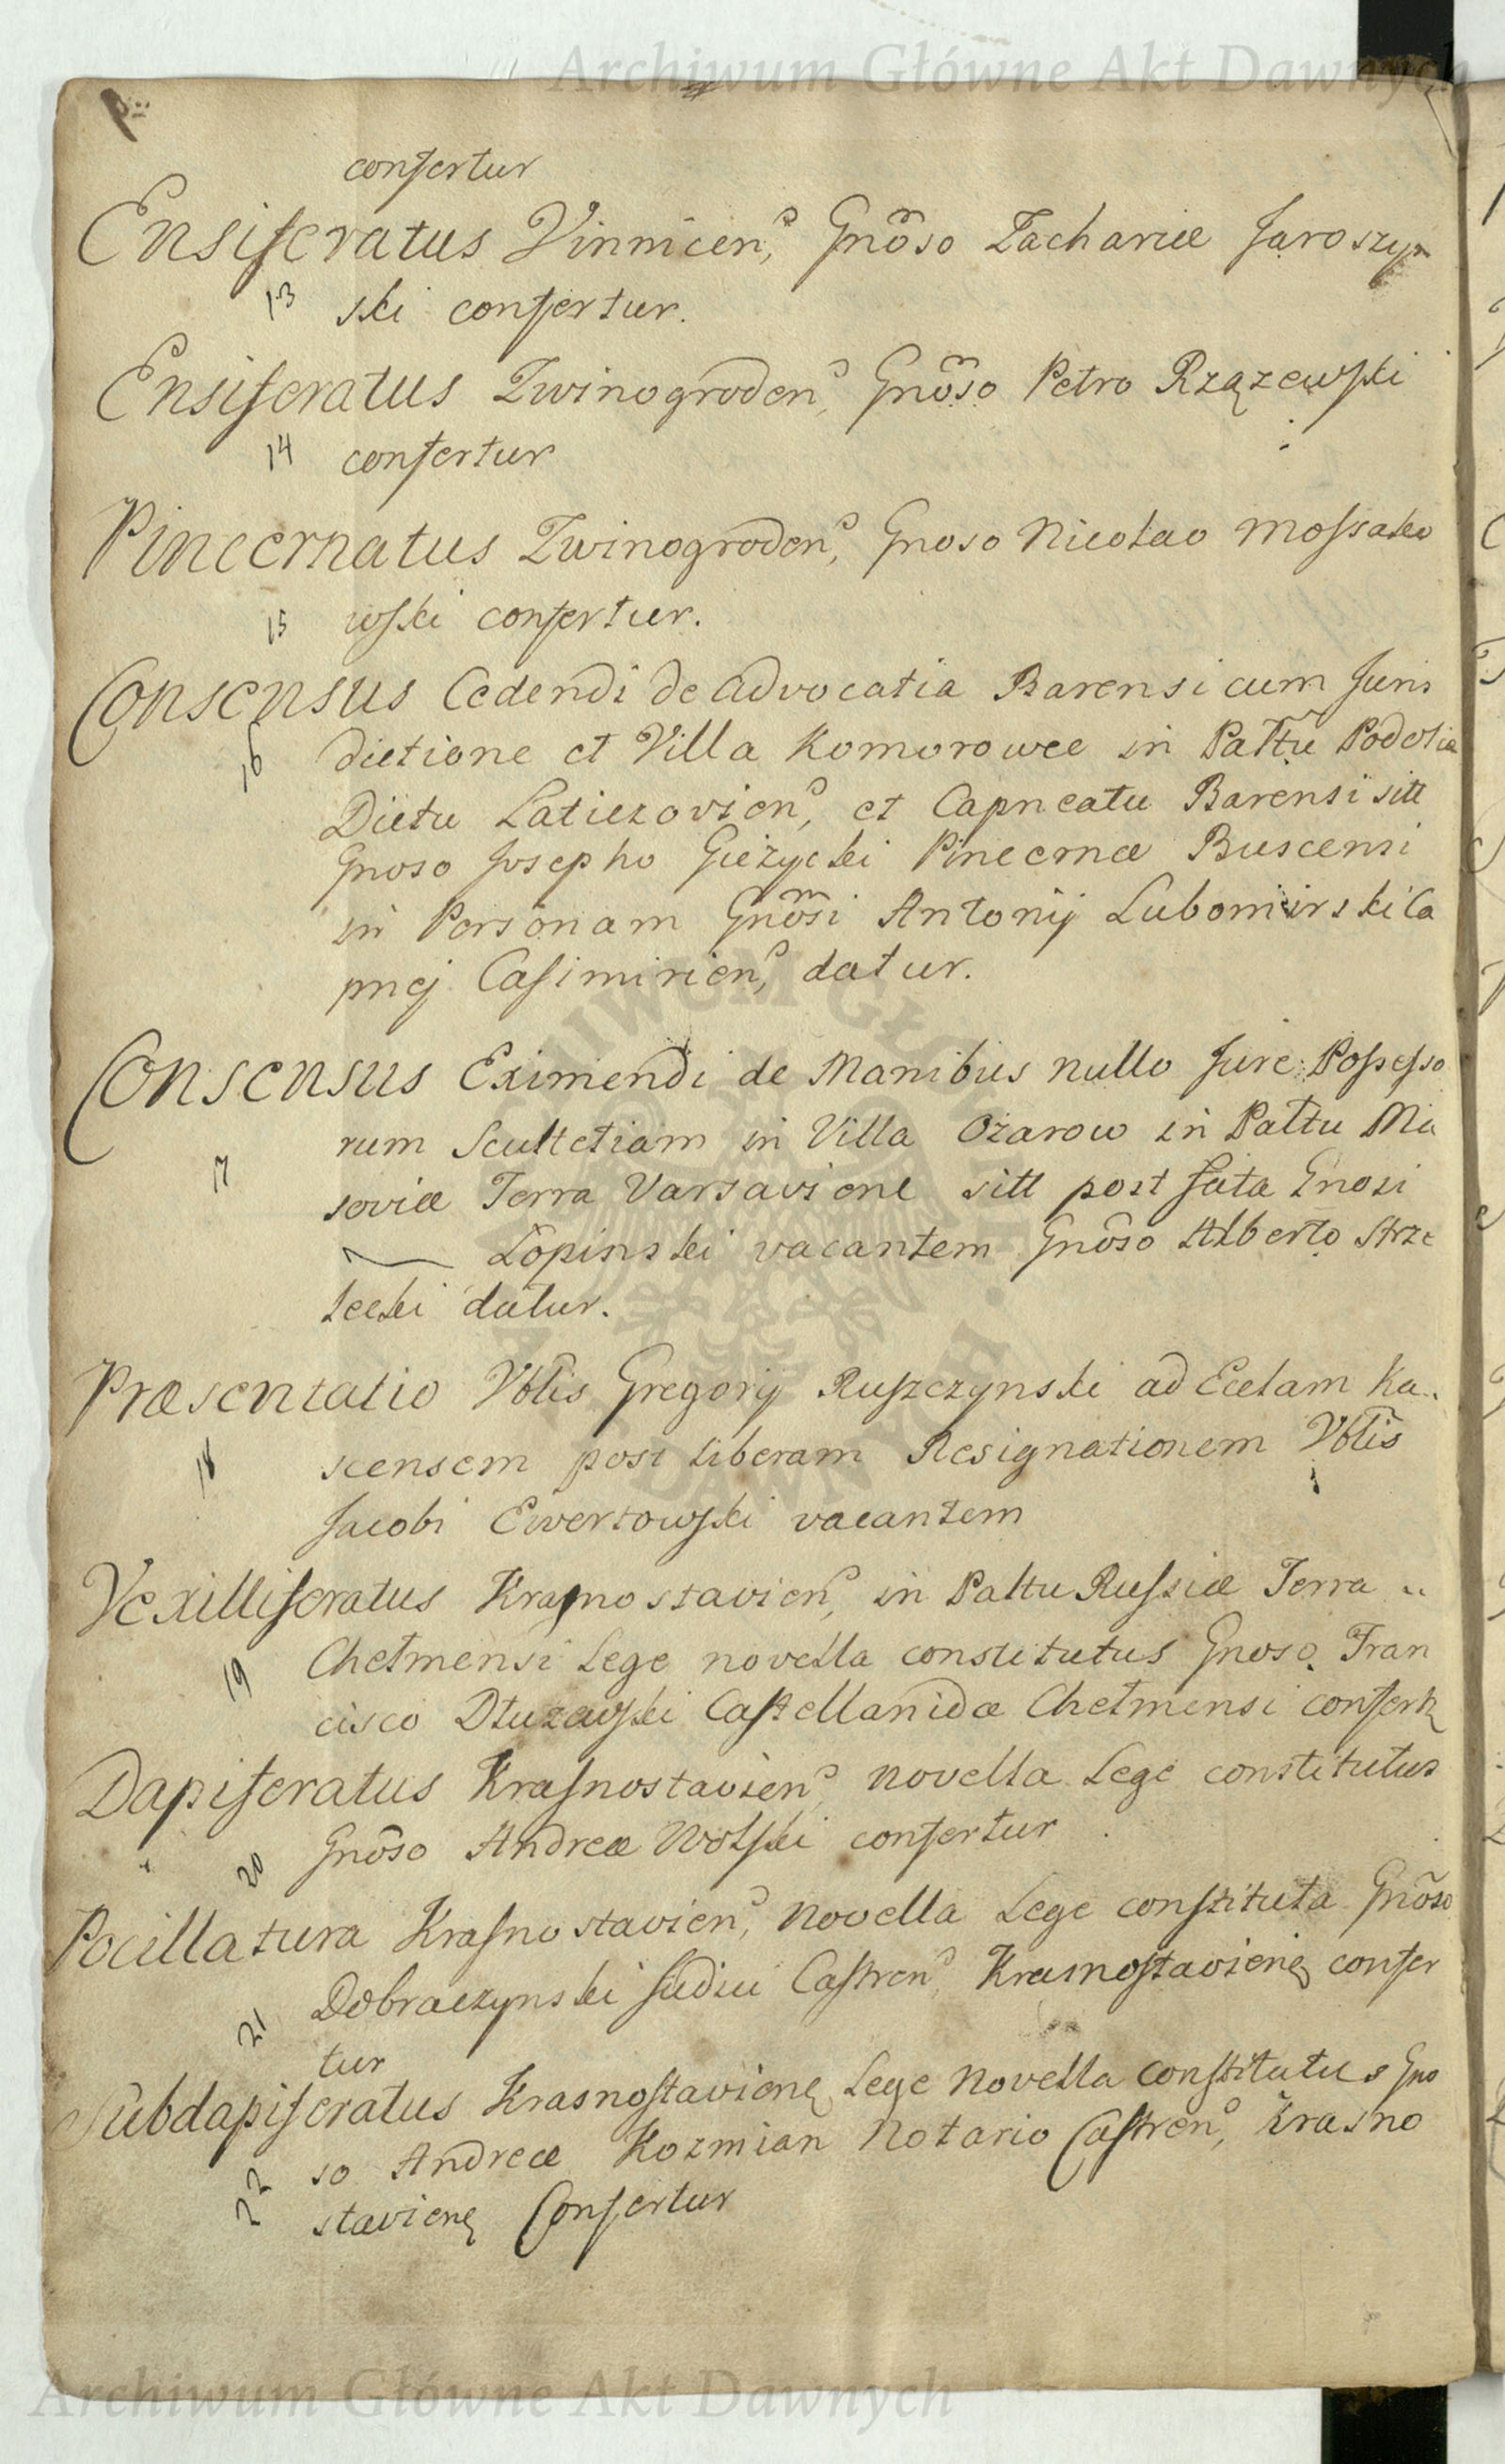 Archiwum Główne Akt Dawnych
confertur
Ensiferatus Vinnicen, Gnõso Zachariæ Jaroszyn
13 ski confertur.
Ensiferatus Zwinogroden, Gnõso Petro Rzązewski
14 confertur
Pincernatus Zwinogroden, Gnoso Nicolao Mossako
15 wski confertur.
Consensus Cedendi de Advocatia Barensi cum Juris
16 dictione et Villa Komorowce in Pałtu Podoliæ
Dictu Laticzovien, et Capneatu Barensi sitt
Gnoso Josepho Giezycki Pincernæ Buscensi
in Personam Gnõsi Antonij Lubomirski Ca
pnej Casimirien, datur.
Consensus Eximendi de Manibus nullo Jure Possesso
rum Scultetiam in Villa Ożarow in Pałtu Ma
17 soviæ Terra Varsaviene sitt post fata Gnosi
Łopinski vacantem Gnõso Alberto Strze
lecki datur.
Præsentatio Vblis Gregorij Ruszczynski ad Eccłam Ka..
18 scensem post liberam Resignationem Vblis
Jacobi Ewertowski vacantem
Vexilliferatus Krasnostavien, in Pałtu Russiæ Terra ..
19 Chełmensi Lege novella constitutus Gnoso Fran
cisco Dłuzewski Castellanidæ Chełmensi confertr
Dapiferatus Krasnostavien, novella Lege constitutus
20 Gnõso Andreæ Wolski confertur
Pocillatura Krasnostavien, novella Lege constituta Gnõso
21 Dobraczynski Judici Castren, Krasnostaviene confer
tur
Subdapiferatus Krasnostaviene Lege Novella constitutus Gno
22 so Andreæ Kozmian Notario Castren, Krasno
staviene Confertur
Archiwum Główne Akt Dawnych